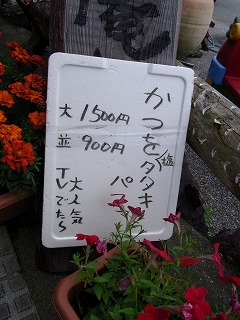 庵
かつをタタキ
塩
大 1500円
並 900円
大人気
TVでたら